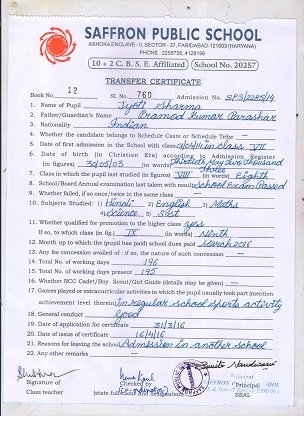 SAFFRON PUBLIC SCHOOL
ASHOKA ENCLAVE - II, SECTOR - 37, FARIDABAD-121003 (HARYANA)
PHONE : 2255735, 4128196
10 + 2 C. B. S. E. Affiliated School No. 20257
TRANSFER CERTIFICATE
Book No. 12 Sl. No. 760 Admission No. SPS/2285/14
1. Name of Pupil Jyoti Sharma
2. Father/Guardian's Name Pramod Kumar Parashar
3. Nationality Indian
4. Whether the candidate belongs to Schedule Caste or Schedule Tribe -
5. Date of first admission in the School with class 1/4/14 in class VII
6. Date of birth (in Christian Era) according to Admission Register
(in figures) 30/05/03 (in words) Thirtieth May Two thousand Three
7. Class in which the pupil last studied (in figures) VIII (in words) Eighth
8. School/Board Annual examination last taken with result School Exam Passed
9. Whether failed, if so once/twice in the same class
10. Subjects Studied: 1) Hindi 2) English 3) Maths
4) Science 5) S.St
11. Whether qualified for promotion to the higher class yes
If so, to which class (in fig.) IX (in words) Ninth
12. Month up to which the (pupil has paid) school dues paid March 2016
13. Any fee concession availed of : if so, the nature of such concession -
14. Total No. of working days 196
15. Total No. of working days present 195
16. Whether NCC Cadet/Boy Scout/Girl Guide (details may be given) -
17. Games played or extracurricular activities in which the pupil usually took part (mention
achievement level therein) In regular school sports activity
18. General conduct Good
19. Date of application for certificate 31/3/16
20. Date of issue of certificate 16/4/16
21. Reasons for leaving the school Admission in another school
22. Any other remarks -
Signature of
Class teacher
Checked by
(state full name and designation)
(co-ordinator)
Principal
SEAL